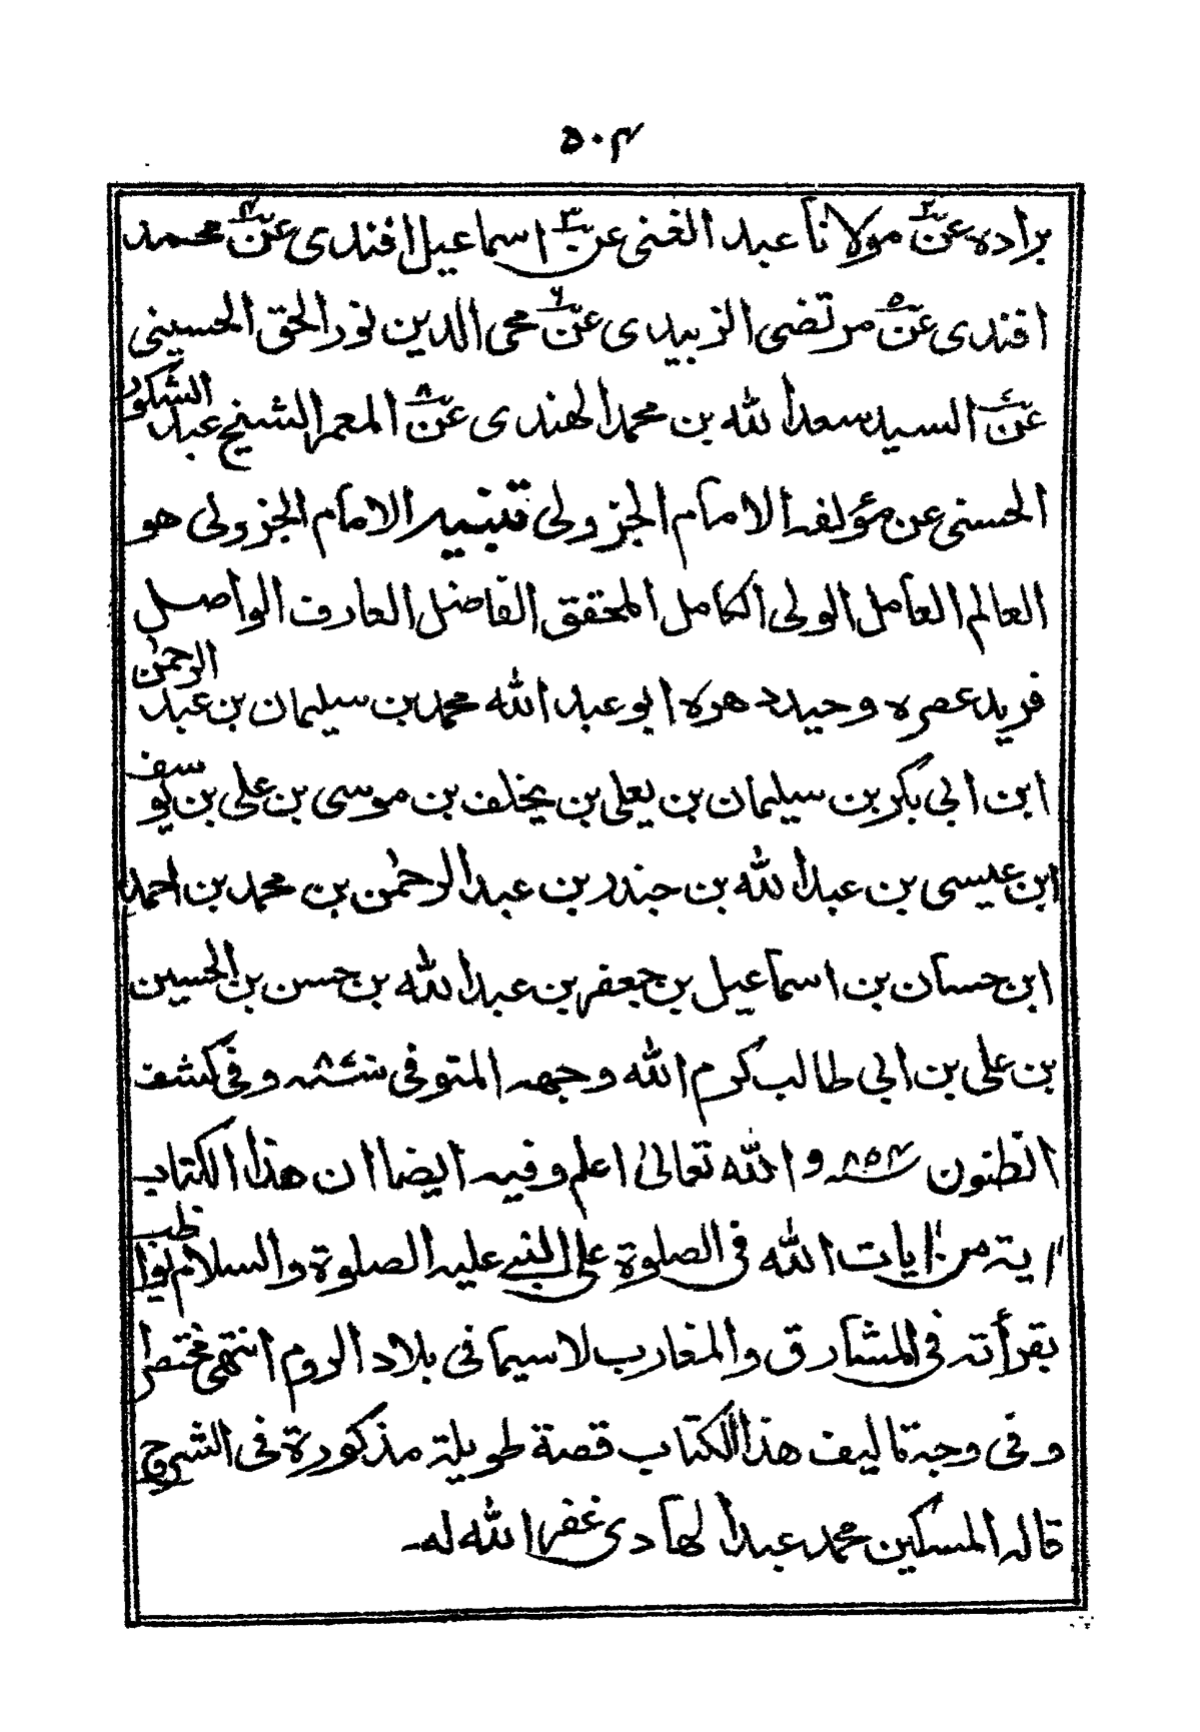 ۵۰۴
براده عن۲ مولانا عبد الغنى عن۳ اسماعيل افندى عن۴ محمد
افندى عن۵ مرتضى الزبيدى عن۶ محى الدين نور الحق الحسينى
عن۷ السيد سعد الله بن محمد الهندى عن۸ المعمر الشيخ عبد الشكور
الحسنى عن مؤلفه الامام الجزولى تنبيه الامام الجزولى هو
العالم العامل الولى الكامل المحقق الفاضل العارف الواصل
فريد عصره وحيد دهره ابو عبد الله محمد بن سليمان بن عبد الرحمن
ابن ابى بكر بن سليمان بن يعلى بن يخلف بن موسى بن على بن يوسف
ابن عيسى بن عبد الله بن جندر بن عبد الرحمٰن بن محمد بن احمد
ابن حسان بن اسماعيل بن جعفر بن عبد الله بن حسن بن الحسين
بن على بن ابى طالب كرم الله وجهه المتوفى سنه وفى كشف
الظنون ۸۵۴ والله تعالىٰ اعلم وفيه ايضا ان هذا الكتاب
اٰية من اٰيات الله فى الصلوة على النبى عليه الصلوة والسلام يواظب
بقرأته فى المشارق والمغارب لاسيما فى بلاد الروم انتهى مختصرا
وفى وجه تاليف هذا الكتاب قصة طويلة مذكورة فى الشروح
قاله المسكين محمد عبد الهادى غفر الله له۔